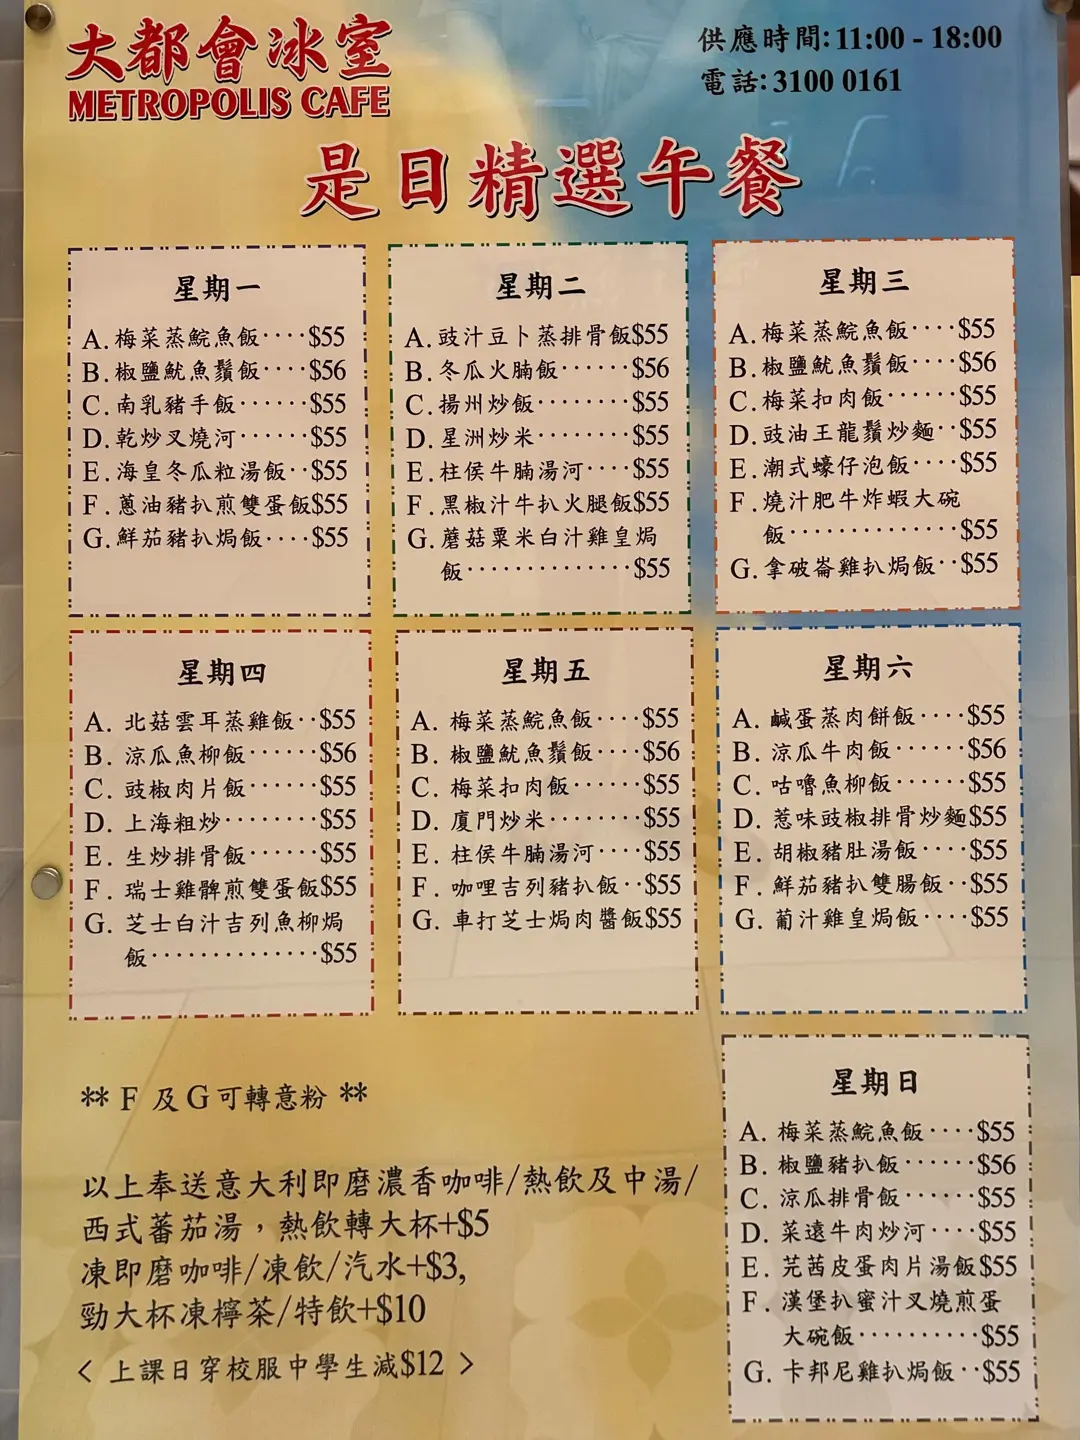 大都會冰室
METROPOLIS CAFE
供應時間：11:00 - 18:00
電話：3100 0161
是日精選午餐
星期一
A. 梅菜蒸鯇魚飯····$55
B. 椒鹽魷魚鬚飯····$56
C. 南乳豬手飯······$55
D. 乾炒叉燒河······$55
E. 海皇冬瓜粒湯飯··$55
F. 蔥油豬扒煎雙蛋飯$55
G. 鮮茄豬扒焗飯····$55
星期二
A. 豉汁豆卜蒸排骨飯$55
B. 冬瓜火腩飯······$56
C. 揚州炒飯········$55
D. 星洲炒米········$55
E. 柱侯牛腩湯河····$55
F. 黑椒汁牛扒火腿飯$55
G. 蘑菇粟米白汁雞皇焗
飯··············$55
星期三
A. 梅菜蒸鯇魚飯····$55
B. 椒鹽魷魚鬚飯····$56
C. 梅菜扣肉飯······$55
D. 豉油王龍鬚炒麵··$55
E. 潮式蠔仔泡飯····$55
F. 燒汁肥牛炸蝦大碗
飯··············$55
G. 拿破崙雞扒焗飯··$55
星期四
A. 北菇雲耳蒸雞飯··$55
B. 涼瓜魚柳飯······$56
C. 豉椒肉片飯······$55
D. 上海粗炒········$55
E. 生炒排骨飯······$55
F. 瑞士雞髀煎雙蛋飯$55
G. 芝士白汁吉列魚柳焗
飯··············$55
星期五
A. 梅菜蒸鯇魚飯····$55
B. 椒鹽魷魚鬚飯····$56
C. 梅菜扣肉飯······$55
D. 廈門炒米········$55
E. 柱侯牛腩湯河····$55
F. 咖哩吉列豬扒飯··$55
G. 車打芝士焗肉醬飯$55
星期六
A. 鹹蛋蒸肉餅飯····$55
B. 涼瓜牛肉飯······$56
C. 咕嚕魚柳飯······$55
D. 惹味豉椒排骨炒麵$55
E. 胡椒豬肚湯飯····$55
F. 鮮茄豬扒雙腸飯··$55
G. 葡汁雞皇焗飯····$55
星期日
A. 梅菜蒸鯇魚飯····$55
B. 椒鹽豬扒飯······$56
C. 涼瓜排骨飯······$55
D. 菜遠牛肉炒河····$55
E. 芫茜皮蛋肉片湯飯$55
F. 漢堡扒蜜汁叉燒煎蛋
大碗飯··········$55
G. 卡邦尼雞扒焗飯··$55
** F 及 G 可轉意粉 **
以上奉送意大利即磨濃香咖啡/熱飲及中湯/
西式蕃茄湯，熱飲轉大杯+$5
凍即磨咖啡/凍飲/汽水+$3,
勁大杯凍檸茶/特飲+$10
< 上課日穿校服中學生減$12 >